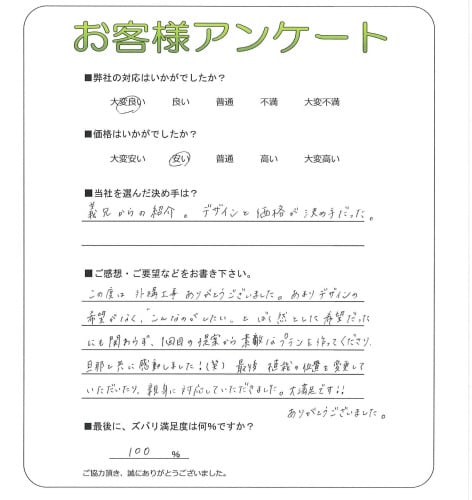 お客様アンケート
■弊社の対応はいかがでしたか？
大変良い 良い 普通 不満 大変不満
■価格はいかがでしたか？
大変安い 安い 普通 高い 大変高い
■当社を選んだ決め手は？
義兄からの紹介。デザインと価格が決め手だった。
■ご感想・ご要望などをお書き下さい。
この度は外構工事ありがとうございました。あまりデザインの
希望がなく、"こんなのがしたい"とばく然とした希望だった
にも関わらず、1回目の提案から素敵なプランを作ってくださり、
旦那と共に感動しました！(笑) 最終 植栽の位置を変更して
いただいたり、親身に対応していただきました。大満足です！！
ありがとうございました。
■最後に、ズバリ満足度は何％ですか？
100 %
ご協力頂き、誠にありがとうございました。